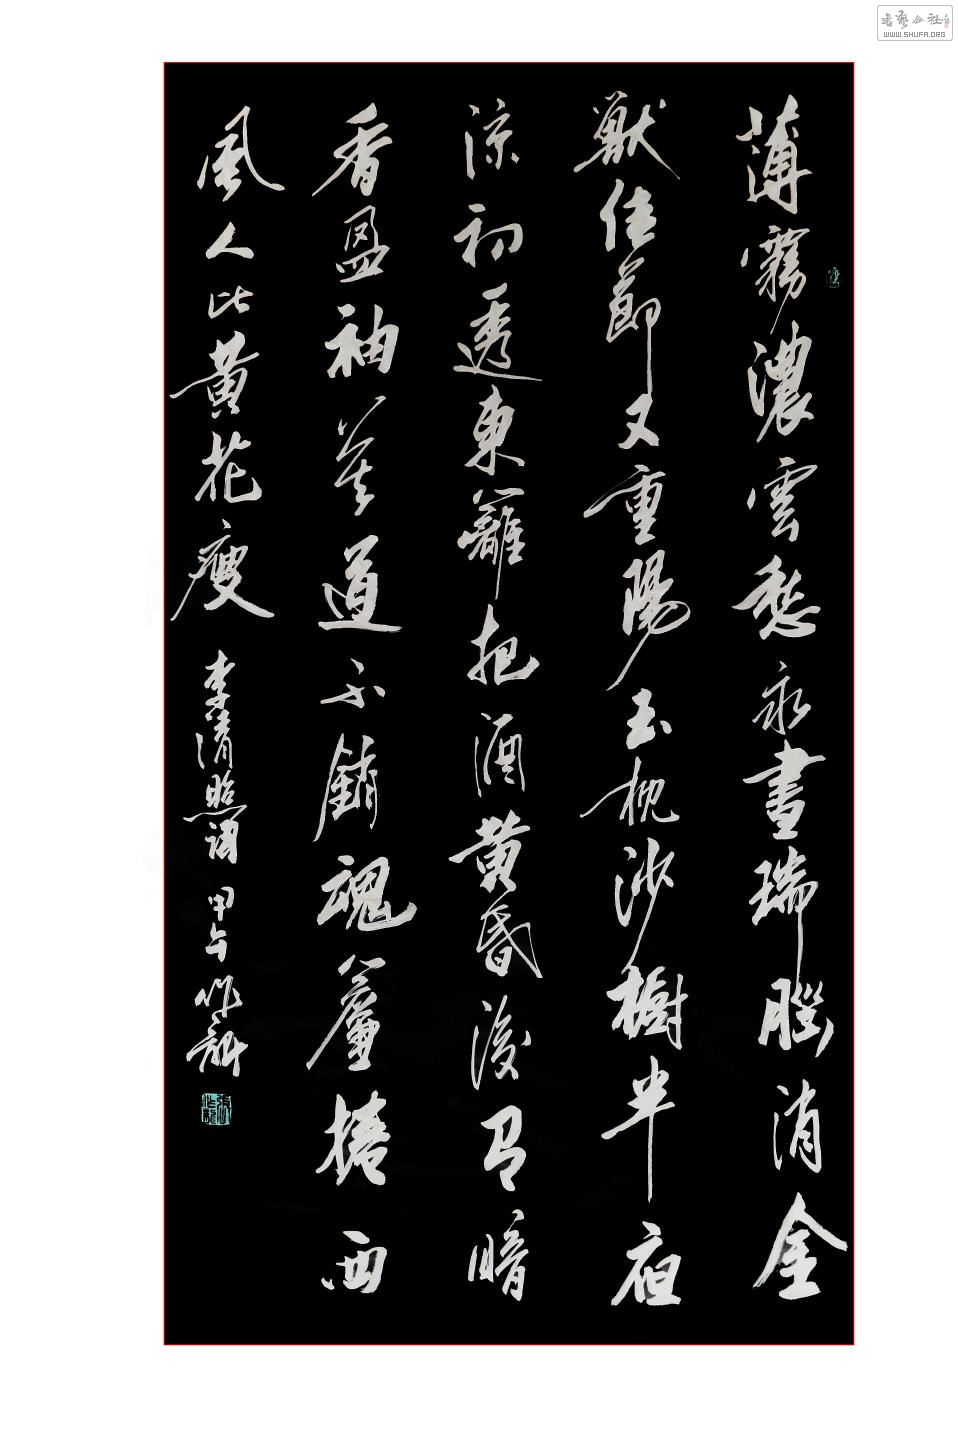 薄霧濃雲愁永晝瑞腦消金
獸佳節又重陽玉枕沙樹半夜
涼初透東籬把酒黃昏後有暗
香盈袖莫道不銷魂簾捲西
風人比黃花瘦 李清照詞 甲午
书艺公社
WWW.SHUFA.ORG